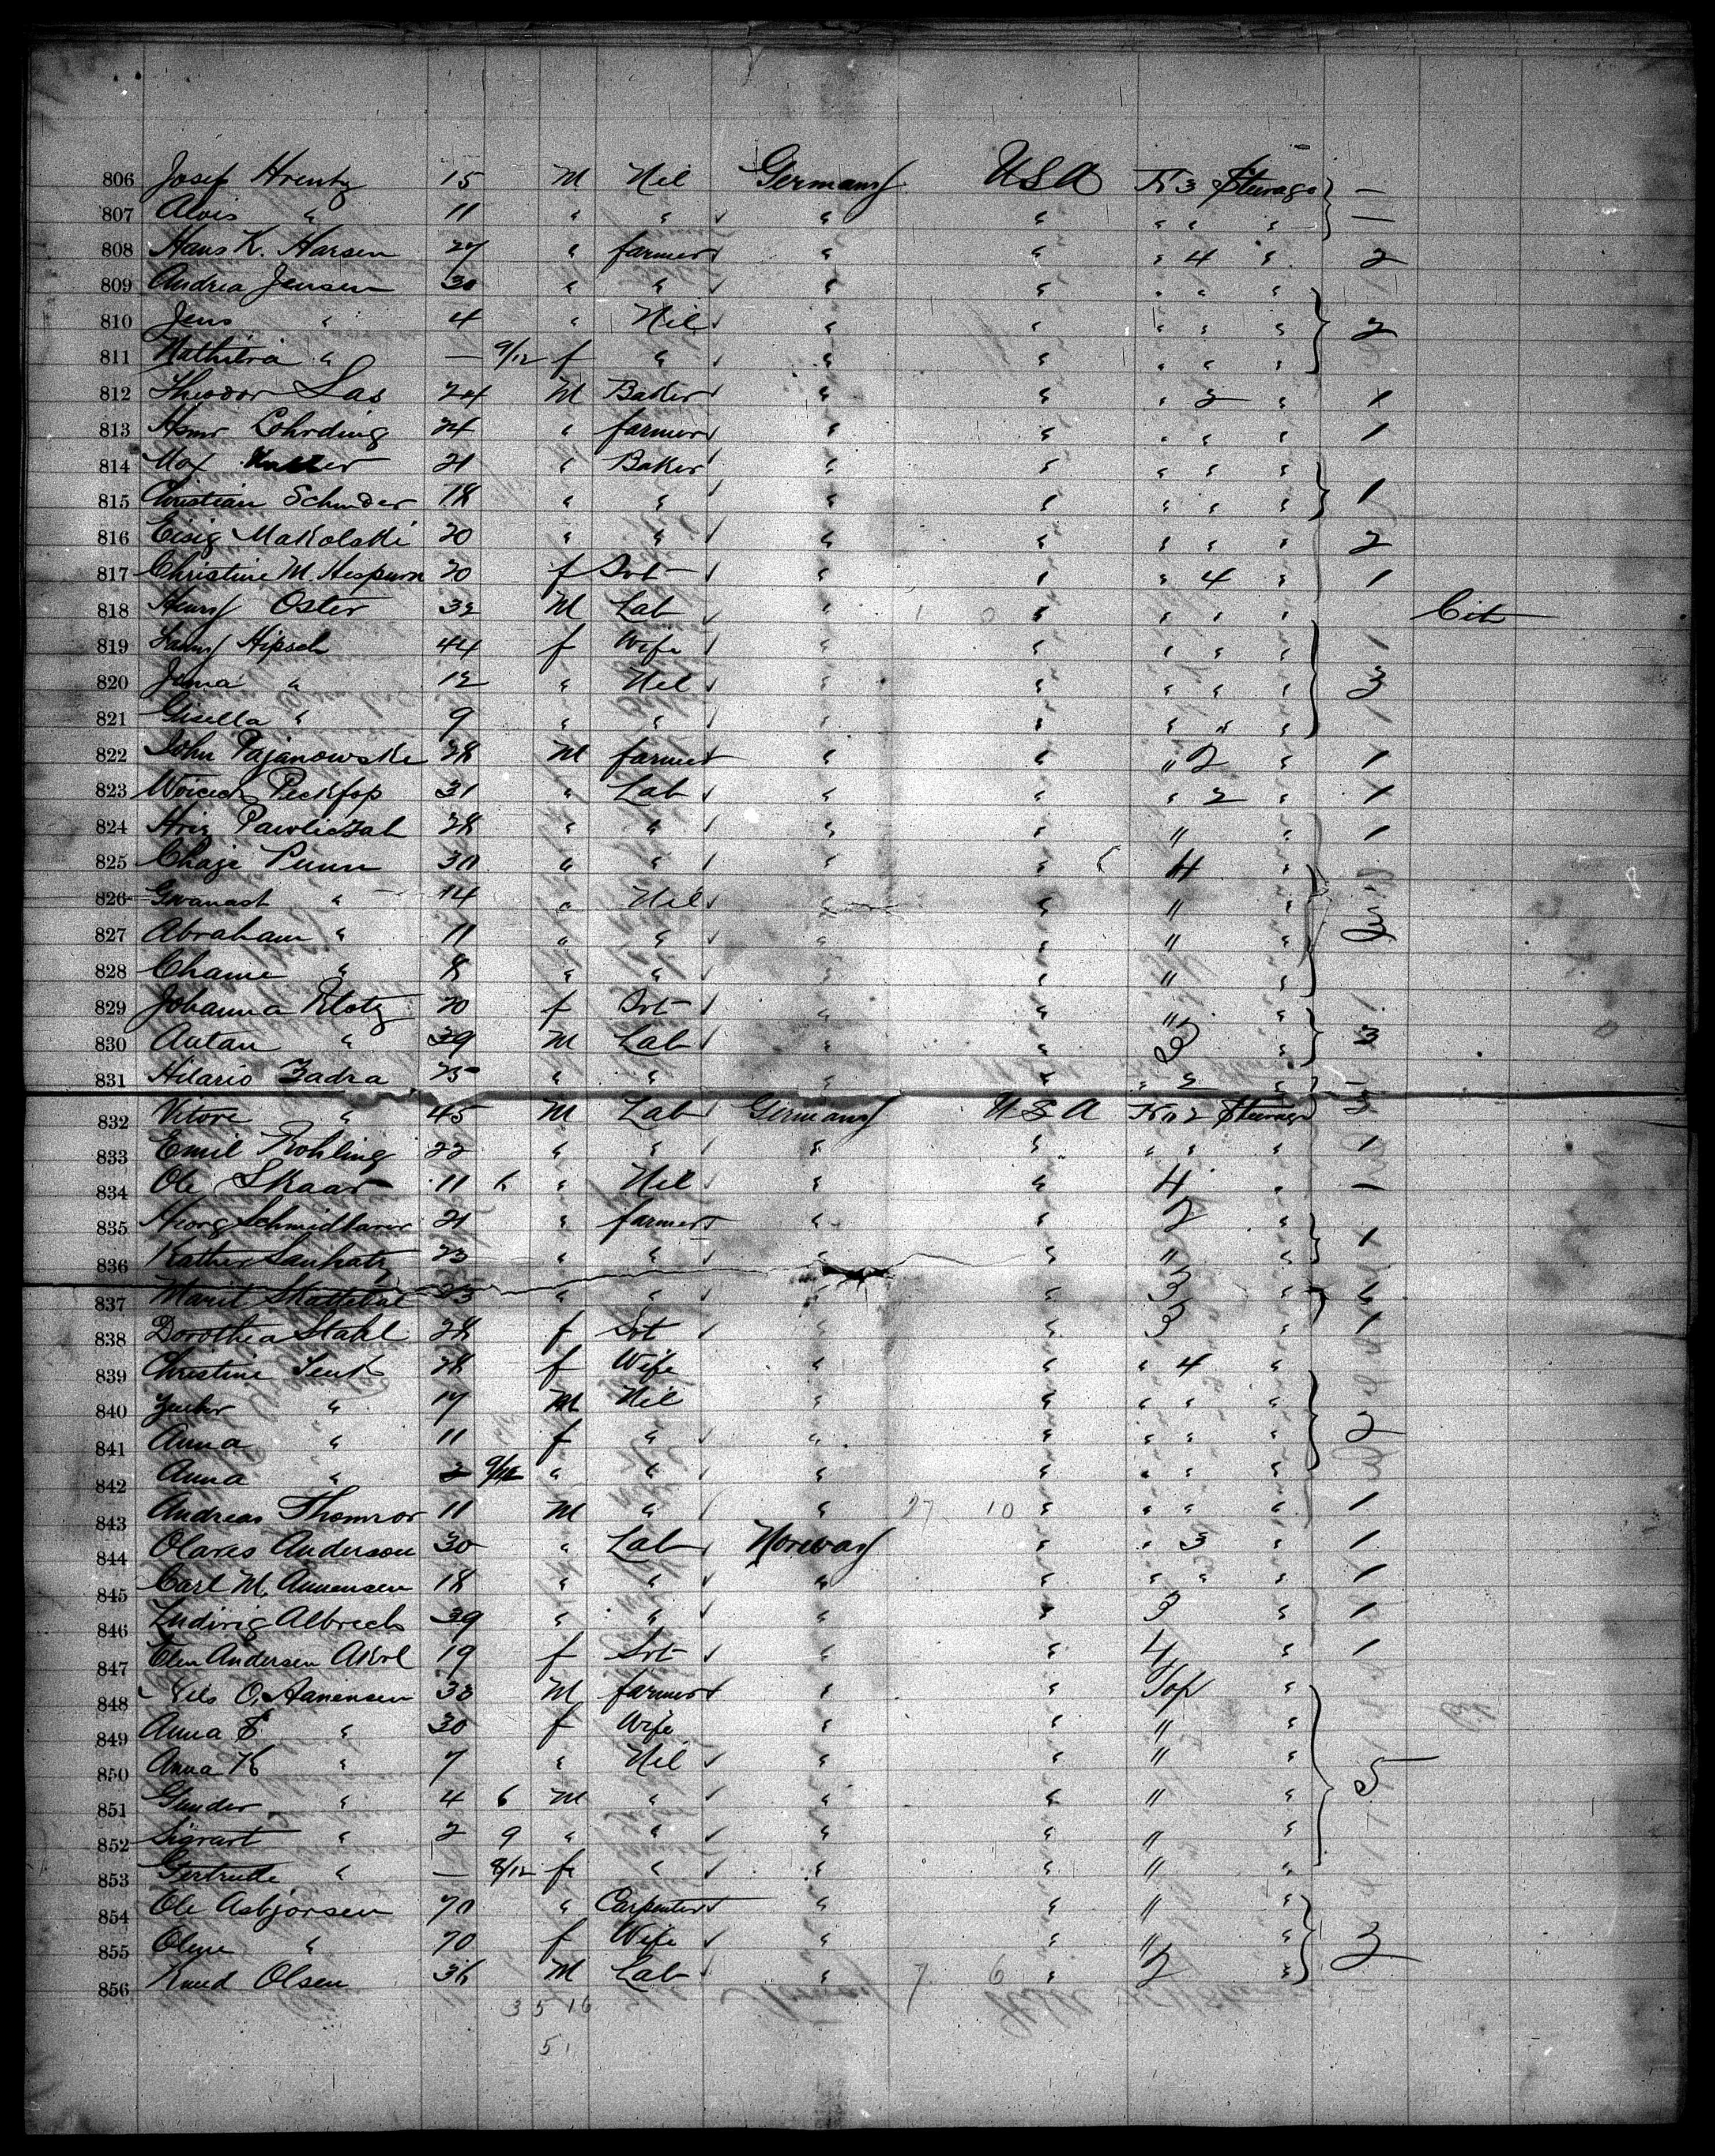 806 Josef Hrentz 15 M Nil Germany USA No 3 Steerage —
807 Alois " 11 " " " " " " " —
808 Hans K. Harsen 27 " farmer " " " 4 " 2
809 Andrea Jensen 30 " " " " " " "
810 Jens " 4 " Nil " " " " " 2
811 " — 9/12 f " " " " " "
812 Theodor Las 24 M Baker " " " 2 " 1
813 Lohrding 24 " farmer " " " " " 1
814 Max 21 " Baker " " " " "
815 Christian Schnider 18 " " " " " " " 1
816 Eisig Makolski 20 " " " " " " " 2
817 Christine M. 20 f Svt " " " 4 " 1
818 Henry Oster 32 M Lab " " " " " Cit
819 Fanny Hipsch 44 f Wife " " " " "
820 " 12 " Nil " " " " " 3
821 Gisella " 9 " " " " " " "
822 John Pajanowske 28 M farmer " " " 2 " 1
823 31 " Lab " " " 2 " 1
824 Pawliczak 28 " " " " " " 1
825 Chaje 30 " " " " 4 "
826 " 14 " Nil " " " "
827 Abraham " 11 " " " " " " 3
828 Chame " 8 " " " " " "
829 Johanna Klotz 20 f Svt " " " "
830 Antan " 39 M Lab " " 3 " 3
831 Hilario Zadra 25 " " " " " 2 " —
832 Vitore " 45 M Lab Germany USA No 2 Steerage
833 Emil Rohling 22 " " " " " " " 1
834 Ole Skaar 11 6 " Nil " " 4 " —
835 Georg 21 " farmer " " 2 "
836 23 " " " " " " 1
837 Marit 23 " " " " 3 "
838 Dorothea Stahl 28 f Svt " " 3 " 1
839 Christine 28 f Wife " " " 4 "
840 " 17 M Nil " " " " "
841 Anna " 11 f " " " " " " 2
842 Anna " 2 9/12 " " " " " " "
843 Andreas 11 M " " 27 10 " " " " 1
844 Olaves Anderson 30 " Lab Norway " " 3 " 1
845 Carl M. Annensen 18 " " " " " " " 1
846 Ludwig Albrech 39 " " " " 3 " 1
847 Elen Andersen 19 f Svt " " 4 " 1
848 Nels O. Aanensen 38 M farmer " " Top "
849 Anna " 30 f Wife " " " "
850 Anna K " 7 " Nil " " " " 5
851 Gunder " 4 6 M " " " " "
852 Sigvart " 2 9 " " " " " "
853 Gertrude " — 8/12 f " " " " "
854 Ole Asbjorsen 70 " Carpenter " " " "
855 Olene " 70 f Wife " " " " 3
856 Knud Olsen 36 M Lab " 7 6 " 2 "
35 16
51